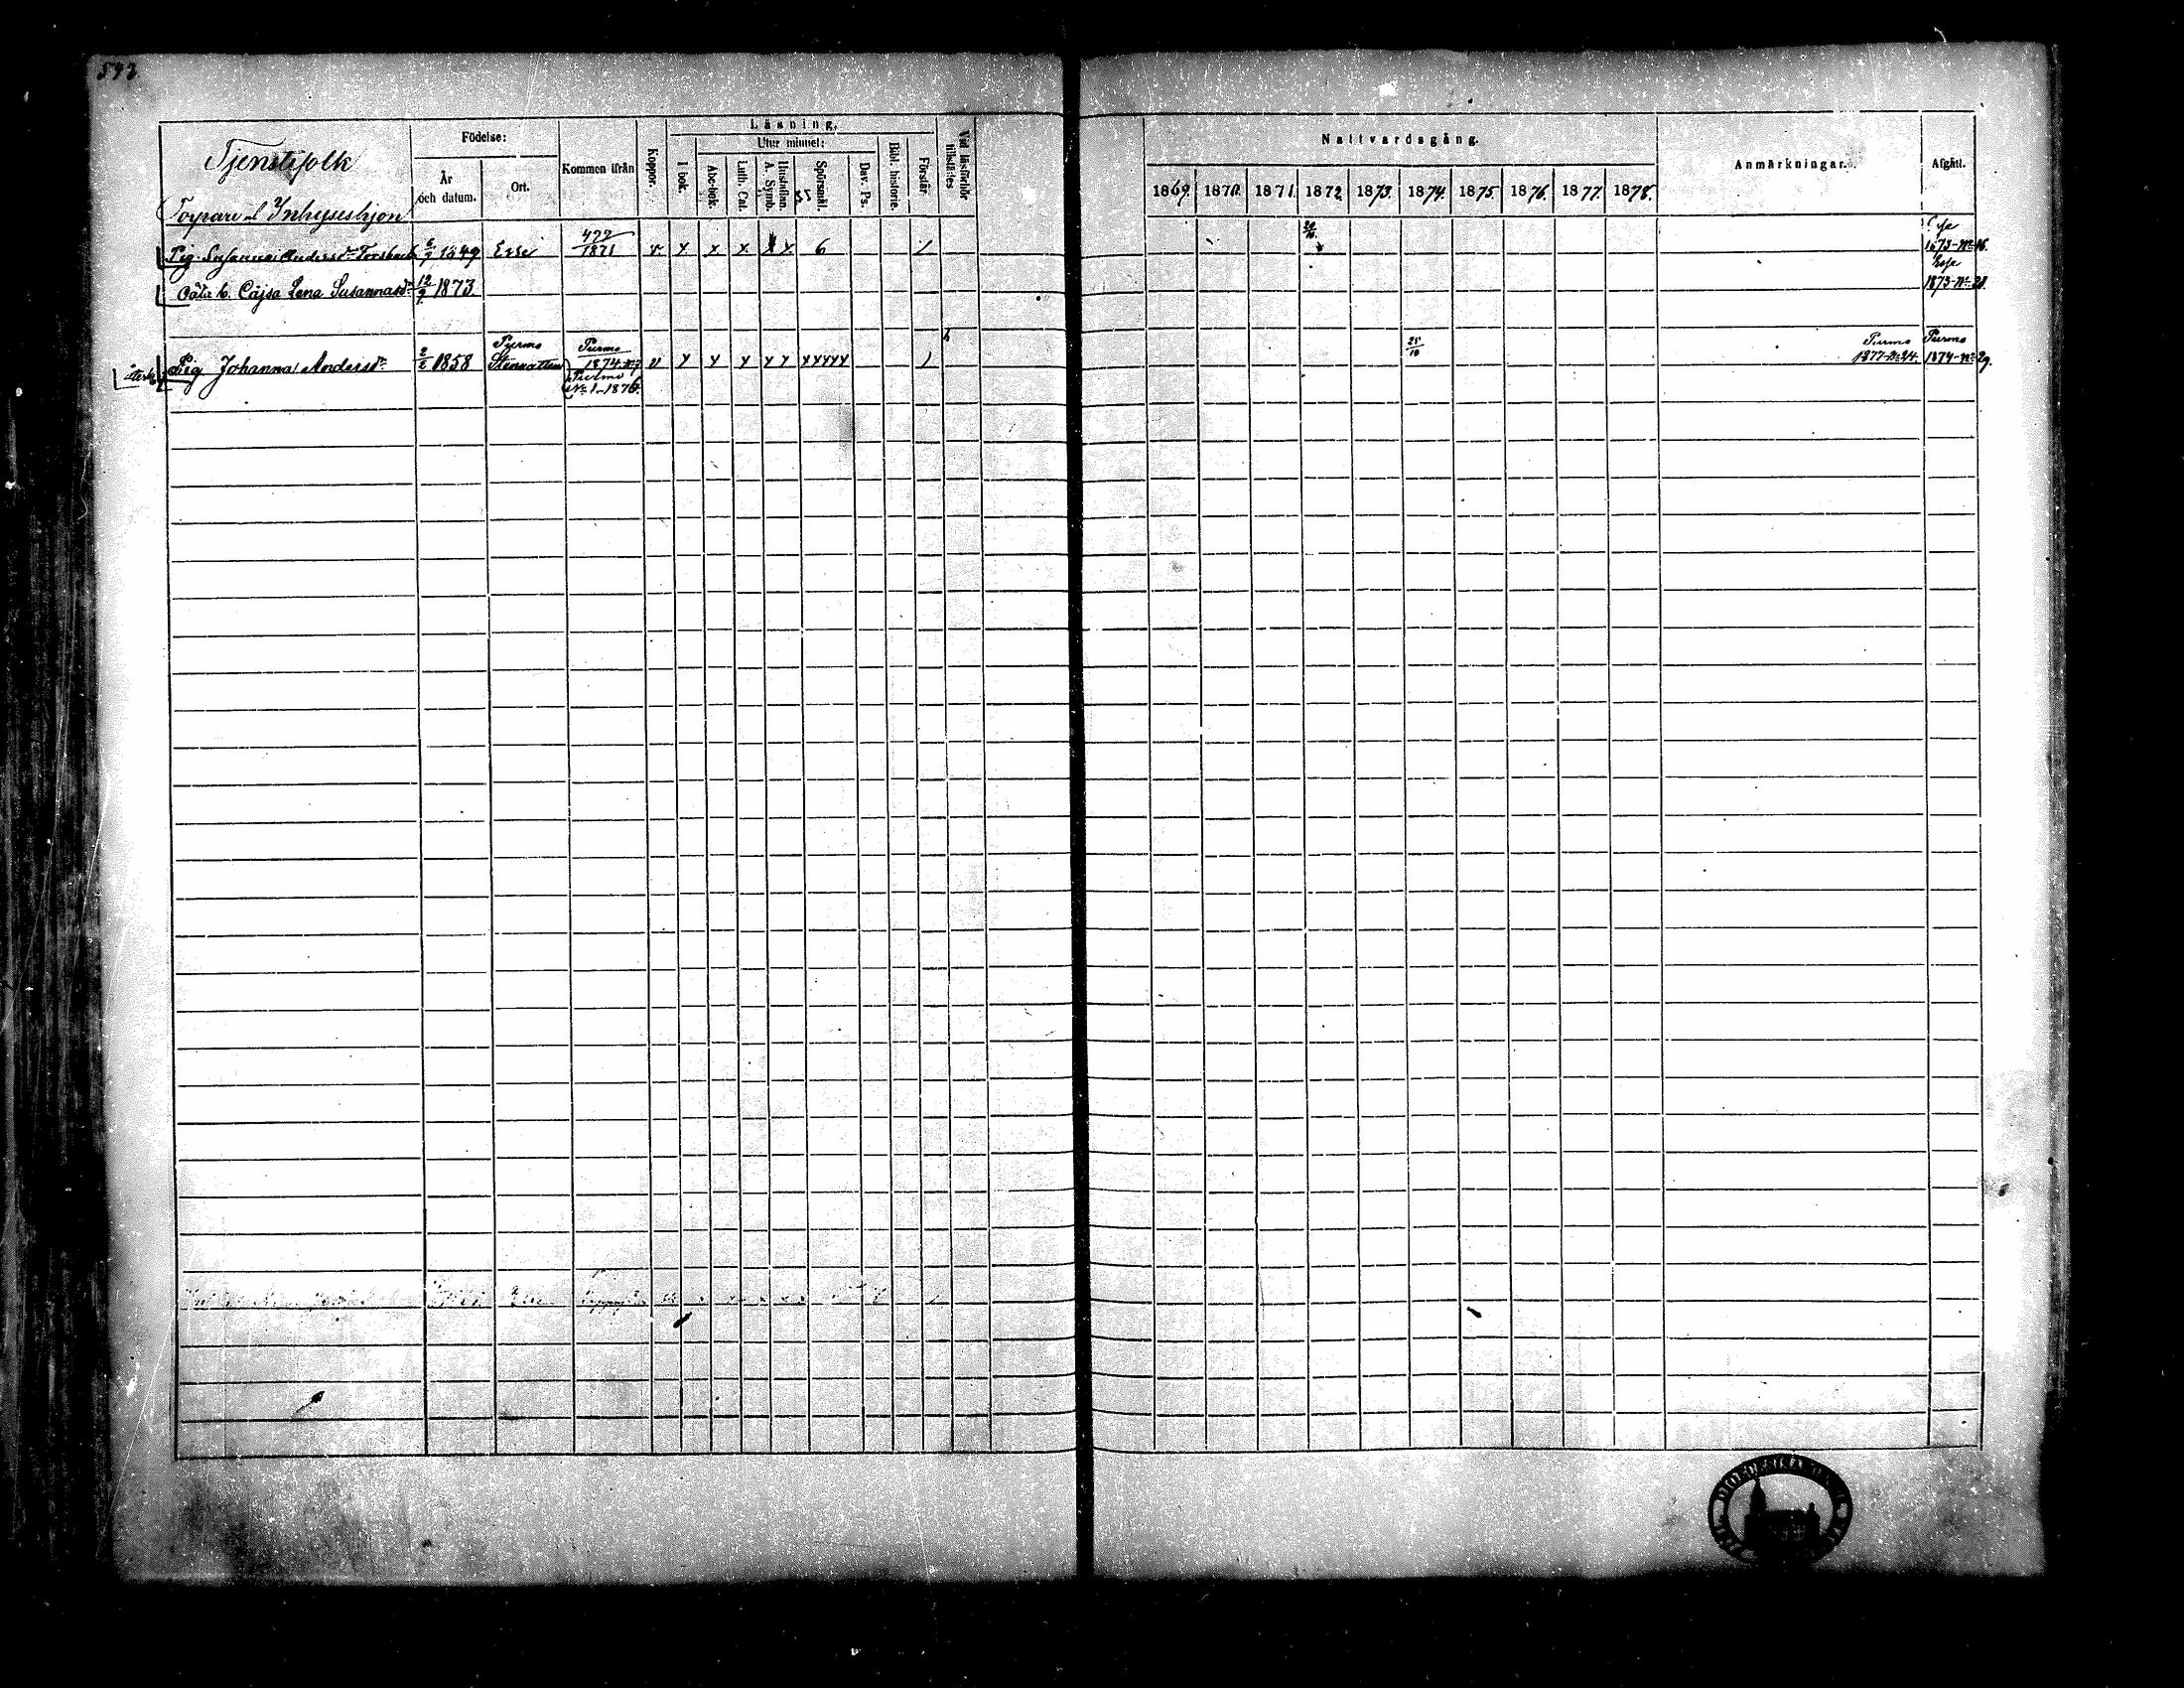 543
Tjenstefolk
Torpare el Inhyseshjon
Födelse:
År och datum.
Ort.
Kommen ifrån
Koppor.
Läsning.
I bok.
Utur minnet:
Abc-bok.
Luth. Cat.
A. Symb. Hustaflan.
Spörsmål.
Dav. Ps.
Bibl. historie.
Förstår
Vid läsförhör
Nattvardsgång.
1869. 1870. 1871. 1872. 1873. 1874. 1875. 1876. 1877. 1878.
Anmärkningar.
Afgått.
Pig. Susanna Andersdr Forsbacka 6/7 1849 Esse 477/1871 v. x x x x x 6 / Esse 1873-No 16.
Oäkta b. Cajsa Lena Susannasdr 12/9 1873 Esse 1873-No 21
Pig Johanna Andersdr 2/2 1858 Purmo Purmo 1874. No 7 v x x x x x xxxxx ) 25/10 Purmo 1877-No 24. Purmo 1874-No 29.
Purmo No 1-1876.